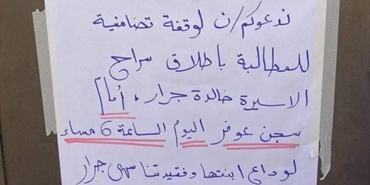 ندعوكم/ن لوقفة تضامنية
للمطالبة باطلاق سراح
الاسيرة خالدة جرار، أمام
سجن عوفر اليوم الساعة 6 مساء
لوداع ابنتها وفقيدتنا سهى جرار